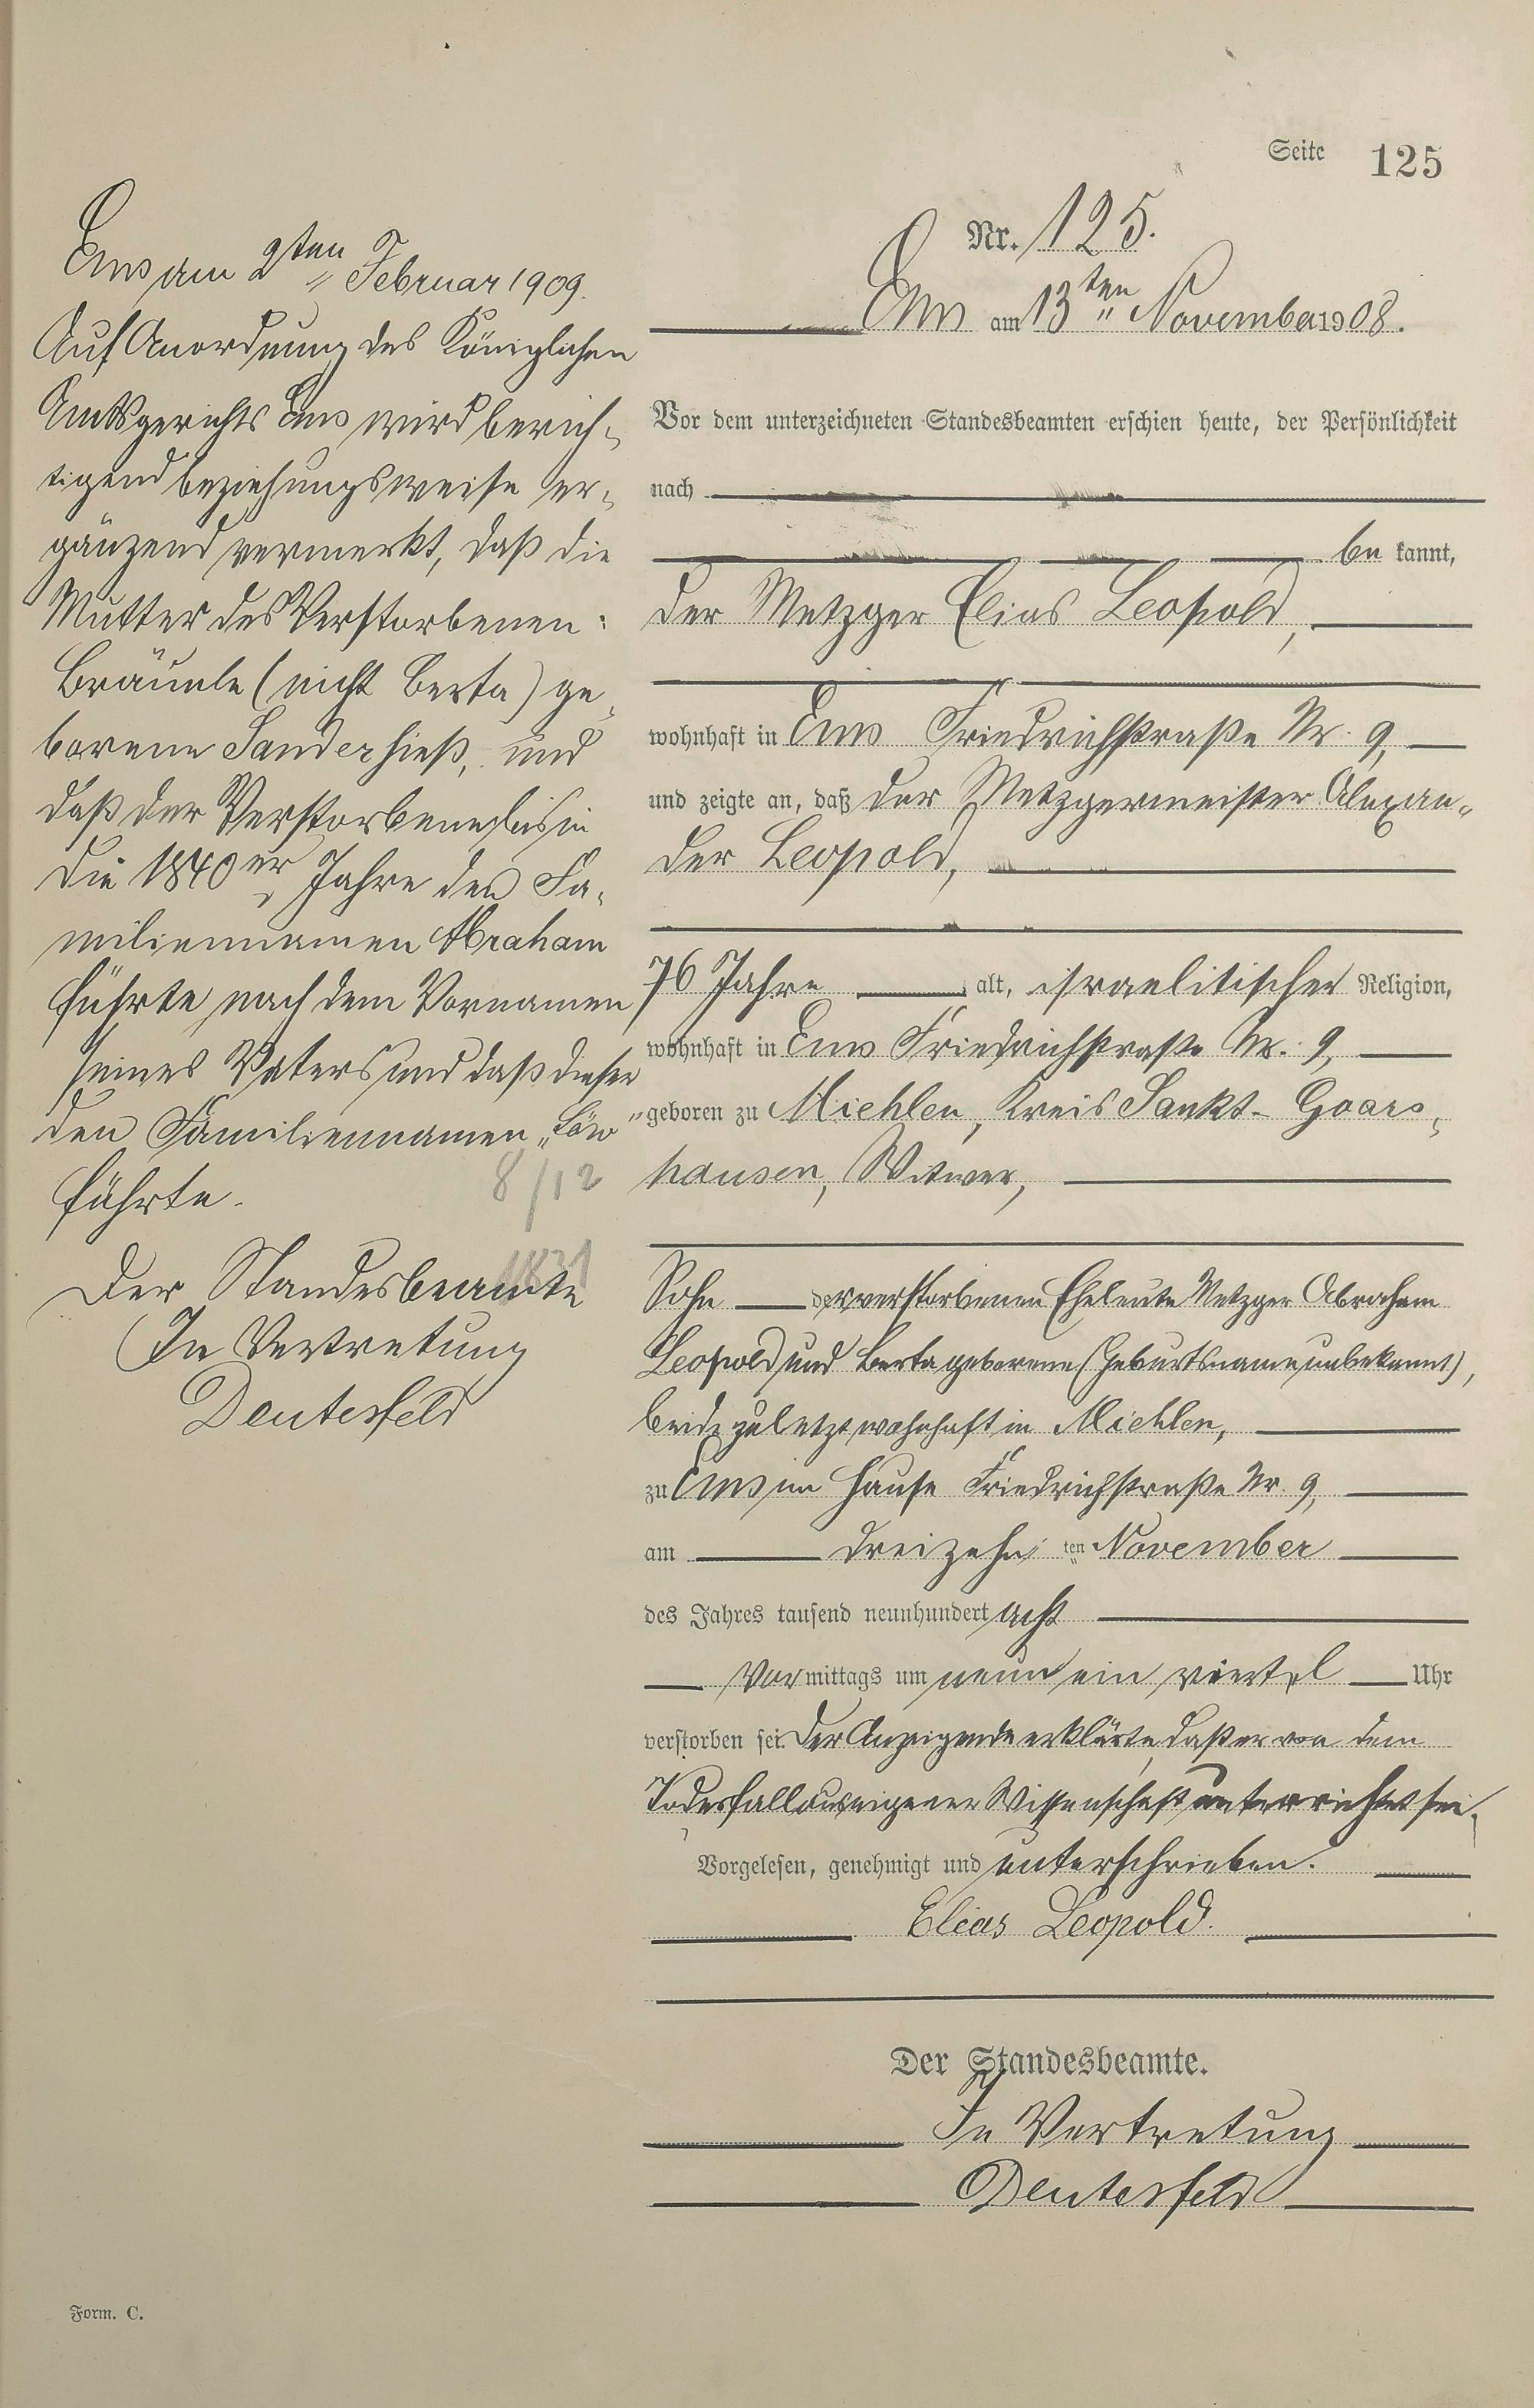 Seite 125
Nr. 125.
Ems am 13ten November 1908.
Vor dem unterzeichneten Standesbeamten erschien heute, der Persönlichkeit
nach
be kannt,
der Metzger Elias Leopold,
wohnhaft in Ems Friedrichstraße Nr. 9,
und zeigte an, daß der Metzgermeister Alexan-
der Leopold,
76 Jahre alt, israelitischer Religion,
wohnhaft in Ems Friedrichstraße Nr. 9,
geboren zu Miehlen, Kreis Sankt-Goars-
hausen, Witwer,
Sohn der verstorbenen Eheleute Metzger Abraham
Leopold und Berta geborene (Geburtsname unbekannt),
beide zuletzt wohnhaft in Miehlen,
zu Ems im Hause Friedrichstraße Nr. 9,
am dreizehn ten November
des Jahres tausend neunhundert acht
Vor mittags um neun ein viertel Uhr
verstorben sei. Der Anzeigende erklärte, daß er von dem
Todesfall aus eigener Wissenschaft unterrichtet sei.
Vorgelesen, genehmigt und unterschrieben.
Elias Leopold.
Der Standesbeamte.
In Vertretung
Deutesfeld
Ems am 2ten Februar 1909.
Auf Anordnung des Königlichen
Amtsgerichts Ems wird berich-
tigend beziehungsweise er-
gänzend vermerkt, daß die
Mutter des Verstorbenen:
Bräunle (nicht Berta) ge-
borene Sander hieß, und
daß der Verstorbene bis in
die 1840er Jahre den Fa-
miliennamen Abraham
führte nach dem Vornamen
seines Vaters und daß dieser
den Familiennamen „Löw"
führte.
8/12
1831
Der Standesbeamte
In Vertretung
Deutesfeld
Form. C.